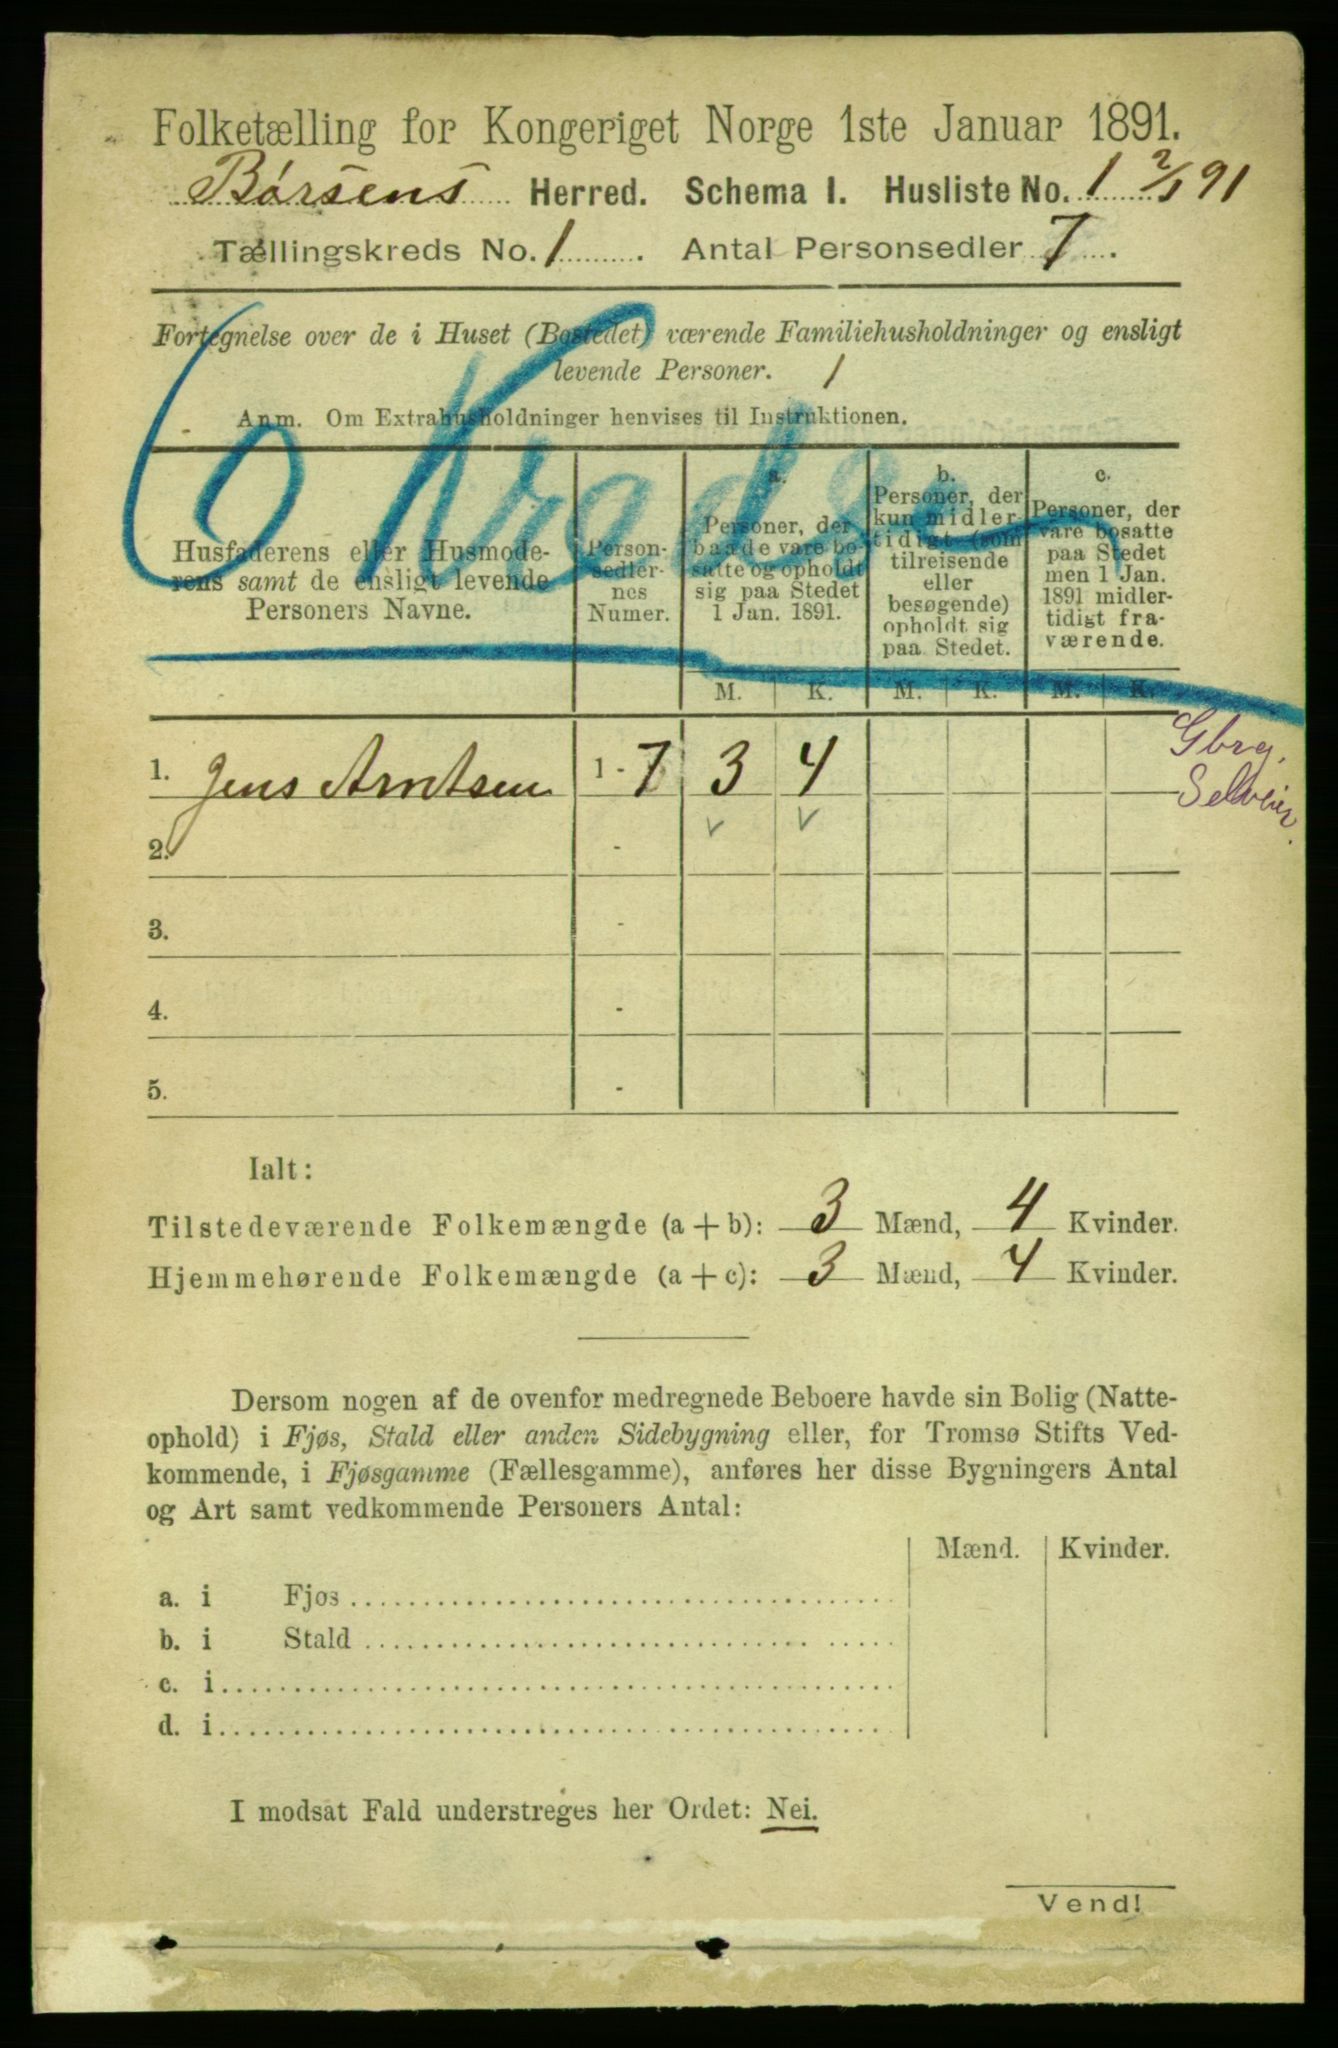 Folketælling for Kongeriget Norge 1ste Januar 1891.
Børsens Herred. Schema 1. Husliste No. 1 2/1 91
Tællingskreds No. 1. Antal Personsedler 7.
Fortegnelse over de i Huset (Bostedet) værende Familiehusholdninger og ensligt
levende Personer. 1
Anm. Om Extrahusholdninger henvises til Instruktionen.
6 Kredse
Husfaderens eller Husmode-
rens samt de ensligt levende
Personers Navne.
Person-
sedler-
nes
Numer.
a.
Personer, der
baade vare bo-
satte og opholdt
sig paa Stedet
1 Jan. 1891.
b.
Personer, der
kun midler-
tidigt (som
tilreisende
eller
besøgende)
opholdt sig
paa Stedet.
c.
Personer, der
vare bosatte
paa Stedet
men 1 Jan.
1891 midler-
tidigt fra-
værende.
M. K. M. K. M. K.
1. Jens Arntsen 1 - 7 3 4
Gbrg.
Selveier.
2. -
3. -
4. -
5. -
Ialt:
Tilstedeværende Folkemængde (a + b): 3 Mænd, 4 Kvinder.
Hjemmehørende Folkemængde (a + c): 3 Mænd, 4 Kvinder.
Dersom nogen af de ovenfor medregnede Beboere havde sin Bolig (Natte-
ophold) i Fjøs, Stald eller anden Sidebygning eller, for Tromsø Stifts Ved-
kommende, i Fjøsgamme (Fællesgamme), anføres her disse Bygningers Antal
og Art samt vedkommende Personers Antal:
Mænd. Kvinder.
a. i Fjøs
b. i Stald
c. i
d. i
I modsat Fald understreges her Ordet: Nei.
Vend!